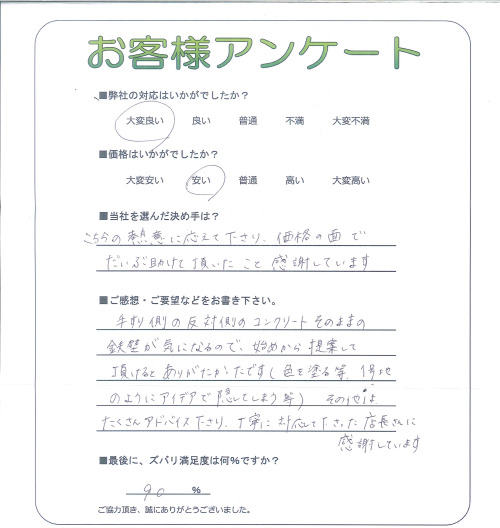 お客様アンケート
■弊社の対応はいかがでしたか？
大変良い 良い 普通 不満 大変不満
■価格はいかがでしたか？
大変安い 安い 普通 高い 大変高い
■当社を選んだ決め手は？
こちらの熱意に応えて下さり、価格の面で
だいぶ助けて頂いたこと感謝しています
■ご感想・ご要望などをお書き下さい。
手すり側の反対側のコンクリートそのままの
鉄壁が気になるので、始めから提案して
頂けるとありがたかったです（色を塗る等、
のようにアイデアで隠してしまう等） その他は
たくさんアドバイス下さり、丁寧に対応して下さった店長さんに
感謝しています
■最後に、ズバリ満足度は何％ですか？
90 ％
ご協力頂き、誠にありがとうございました。